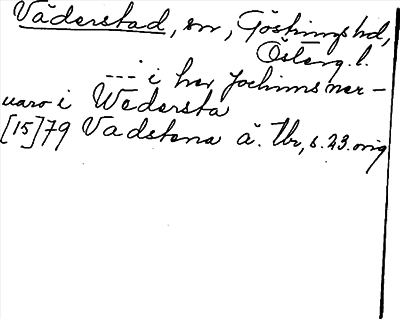 Väderstad, sn, Göstrings hd,
Österg. l.
--- i her Jochims när-
uaro i Wedersta
[15]79 Vadstena ä. Tb, s. 23. orig